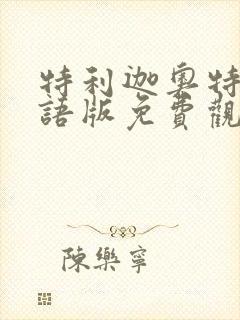 特利迦奧特
語版免費觀
陳樂寧